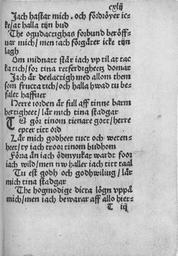 cxlij
Jach hastar mich, och fördröyer ic=
ke/at halla tijn bud
The ogudactighas forbund beröffs
nar mich/men iach forgäter icke tijn
lagh
Om midnatt står iach vp til at tac
ka tich/for tina retferdigheetz domar
Jach är deelactigh med allom them
som fructa tich/och halla hwad tu be=
falet haffuer
Herre iorden är full aff tinne barm
hertigheet/lär mich tina stadgar
Tu gör tinom tienare gott/herre
epter titt ord
Lär mich godheet tucht och wetens=
heet/ty iach troor tinom budhom
Föra än iach ödmyukat warde foor
iach wild/men nw haller iach titt taal
Tu est godh och godhwiliug/lär
mich tina stadgar
The hogmodige dicta lögn vppå
mich/men iach bewarar aff allo hier=
T iij